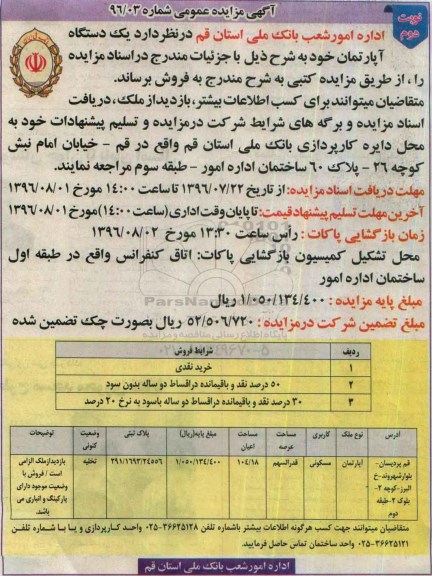 آگهی مزایده عمومی شماره ۹۶/۰۳
نوبت دوم
اداره امور شعب بانک ملی استان قم در نظر دارد یک دستگاه
آپارتمان خود به شرح ذیل با جزئیات مندرج در اسناد مزایده
را، از طریق مزایده کتبی به شرح مندرج به فروش برساند.
متقاضیان میتوانند برای کسب اطلاعات بیشتر، بازدید از ملک، دریافت
اسناد مزایده و برگه های شرایط شرکت در مزایده و تسلیم پیشنهادات خود به
محل دایره کارپردازی بانک ملی استان قم واقع در قم - خیابان امام نبش
کوچه ۲۶ - پلاک ۶۰ ساختمان اداره امور - طبقه سوم مراجعه نمایند.
مهلت دریافت اسناد مزایده: از تاریخ ۱۳۹۶/۰۷/۲۲ تا ساعت ۱۴:۰۰ مورخ ۱۳۹۶/۰۸/۰۱
آخرین مهلت تسلیم پیشنهاد قیمت: تا پایان وقت اداری (ساعت ۱۴:۰۰) مورخ ۱۳۹۶/۰۸/۰۱
زمان بازگشایی پاکات: رأس ساعت ۱۳:۳۰ مورخ ۱۳۹۶/۰۸/۰۲
محل تشکیل کمیسیون بازگشایی پاکات: اتاق کنفرانس واقع در طبقه اول
ساختمان اداره امور
مبلغ پایه مزایده: ۱/۰۵۰/۱۳۴/۴۰۰ ریال
مبلغ تضمین شرکت در مزایده: ۵۲/۵۰۶/۷۲۰ ریال بصورت چک تضمین شده
ردیف شرایط فروش
۱ خرید نقدی
۲ ۵۰ درصد نقد و باقیمانده در اقساط دو ساله بدون سود
۳ ۳۰ درصد نقد و باقیمانده در اقساط دو ساله با سود به نرخ ۲۰ درصد
آدرس نوع ملک کاربری مساحت عرصه مساحت اعیان مبلغ پایه (ریال) پلاک ثبتی وضعیت کنونی توضیحات
قم پردیسان- بلوار شهروند-خ البرز-کوچه ۲- بلوک ۲-طبقه دوم آپارتمان مسکونی قدرالسهم ۱۰۴/۱۸ ۱/۰۵۰/۱۳۴/۴۰۰ ۲۹۱/۱۶۹۳/۲۴۵۵۶ تخلیه بازدید از ملک الزامی است / فروش با وضعیت موجود دارای پارکینگ و انباری می باشد.
متقاضیان میتوانند جهت کسب هرگونه اطلاعات بیشتر باشماره تلفن ۳۶۶۲۵۱۲۸-۰۲۵ واحد کارپردازی و یا با شماره تلفن
۳۶۶۲۵۱۲۱-۰۲۵ واحد ساختمان تماس حاصل فرمایید.
اداره امور شعب بانک ملی استان قم